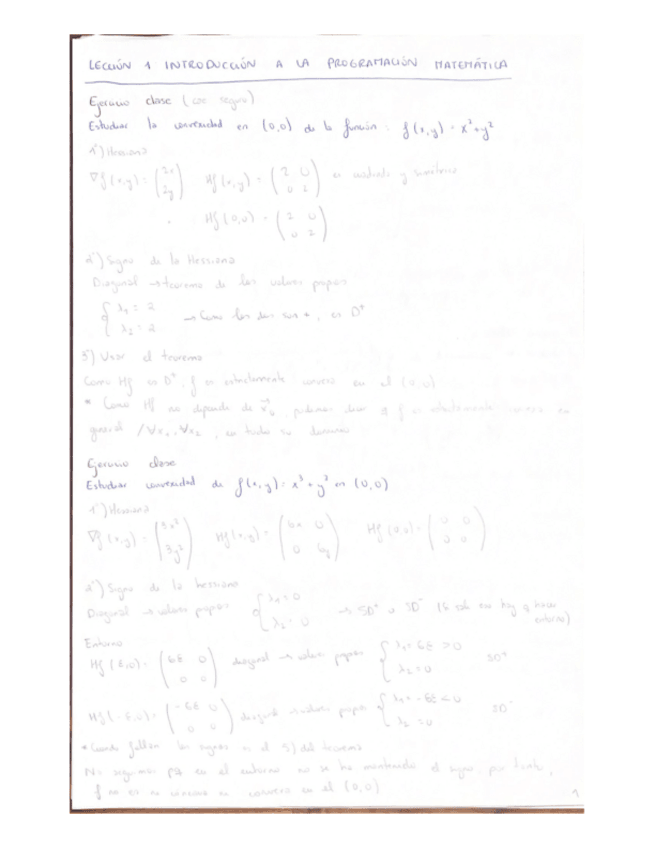 LECCIÓN 1 INTRODUCCIÓN A LA PROGRAMACIÓN MATEMÁTICA
Ejercicio clase (
Estudiar la convexidad en (0,0) de la función: f(x,y) = x²+y²
1º) Hessiana
∇f(x,y) = (2x 2y) Hf(x,y) = (2 0 0 2) es cuadrada y simétrica
Hf(0,0) = (2 0 0 2)
2º) Signo de la Hessiana
Diagonal → teorema de los valores propios
{ λ₁ = 2 λ₂ = 2 → Como los dos son +, es D⁺
3) Usar el teorema
Como Hf es D⁺, f es estrictamente convexa en el (0,0)
* Como Hf no depende de x⃗₀, podemos decir q f es estrictamente convexa en
general /∀x₁, ∀x₂, en todo su dominio
Ejercicio clase
Estudiar convexidad de f(x,y) = x³+y³ en (0,0)
1º) Hessiana
∇f(x,y) = (3x² 3y²) Hf(x,y) = (6x 0 0 6y) Hf(0,0) = (0 0 0 0)
2º) Signo de la hessiana
Diagonal → valores propios { λ₁ = 0 λ₂ = 0 → SD⁺ o SD⁻ (hay q hacer entorno)
Entorno
Hf(ε,0) = (6ε 0 0 0) diagonal → valores propios { λ₁ = 6ε > 0 λ₂ = 0 SD⁺
Hf(-ε,0) = (-6ε 0 0 0) diagonal → valores propios { λ₁ = -6ε < 0 λ₂ = 0 SD⁻
* Cuando fallan los signos el 3) del teorema
No seguimos pq en el entorno no se ha mantenido el signo por tanto,
f no es ni cóncava ni convexa en el (0,0)
1